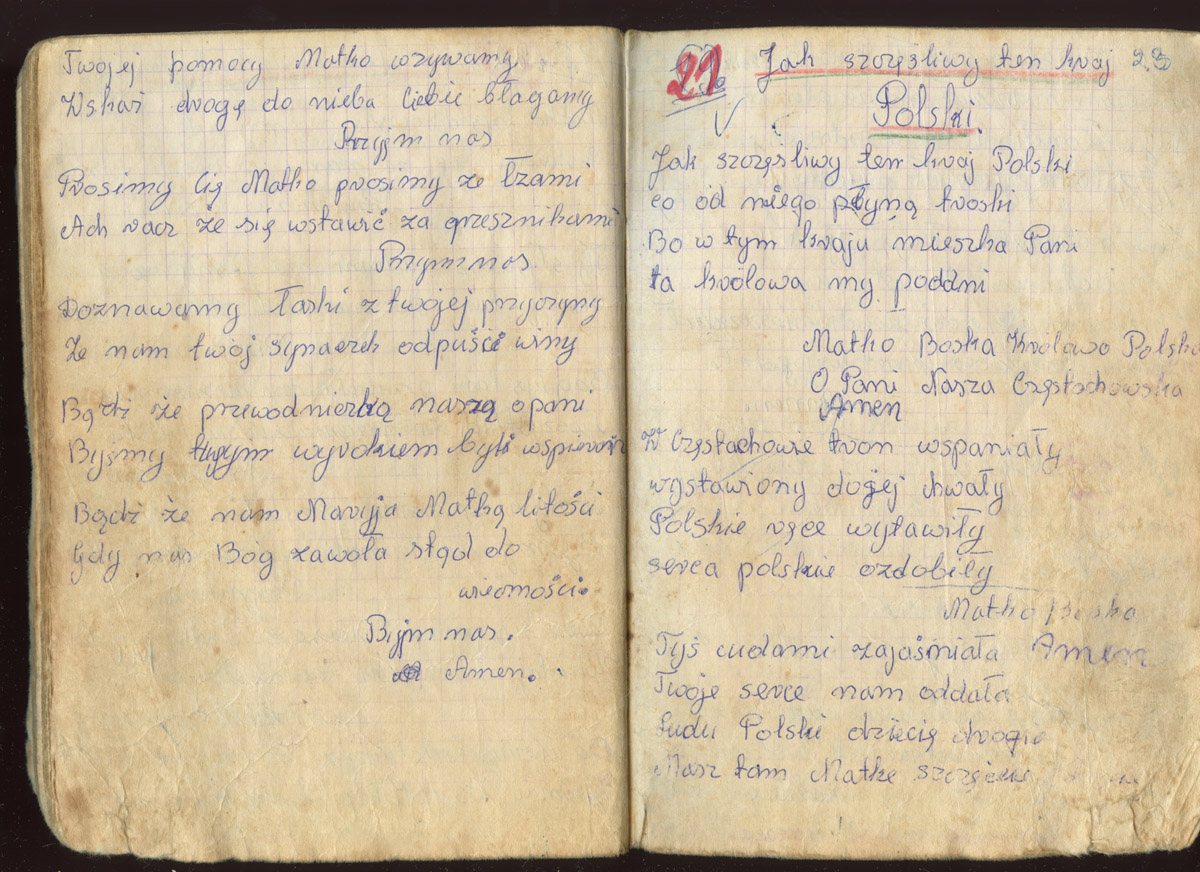 Twojej pomocy Matko wzywamy
Wskaż drogę do nieba Ciebie błagamy
Przyjm nas
Prosimy Cię Matko prosimy ze łzami
Ach racz że się wstawić za grzesznikami
Przym nas
Doznawamy łaski z twojej przyczyny
Że nam twój synaczek odpuści winy
Bądź że przewodniczką naszą o pani
Byśmy twym wyrokiem byli
Bądź że nam Maryja Matką litości
Gdy nas Bóg zawoła stąd do
wiecności.
Byjm nas.
Amen.
22 Jak szczęśliwy ten kraj 23
Polski
Jak szczęśliwy ten kraj Polski
co od niego płyną troski
Bo w tym kraju mieszka Pani
ta królowa my poddni
Matko Boska Królowo Polska
O Pani Nasza Częstochowska
Amen
W Częstachowie tron wspaniały
wystawiony do jej chwały
Polskie ręce wytawiły
serca polskie ozdobiły
Matko Boska
Tyś cudami zajaśniała Amen
Twoje serce nam oddała
Ludu Polski dziecię drogie
Masz tam Matke